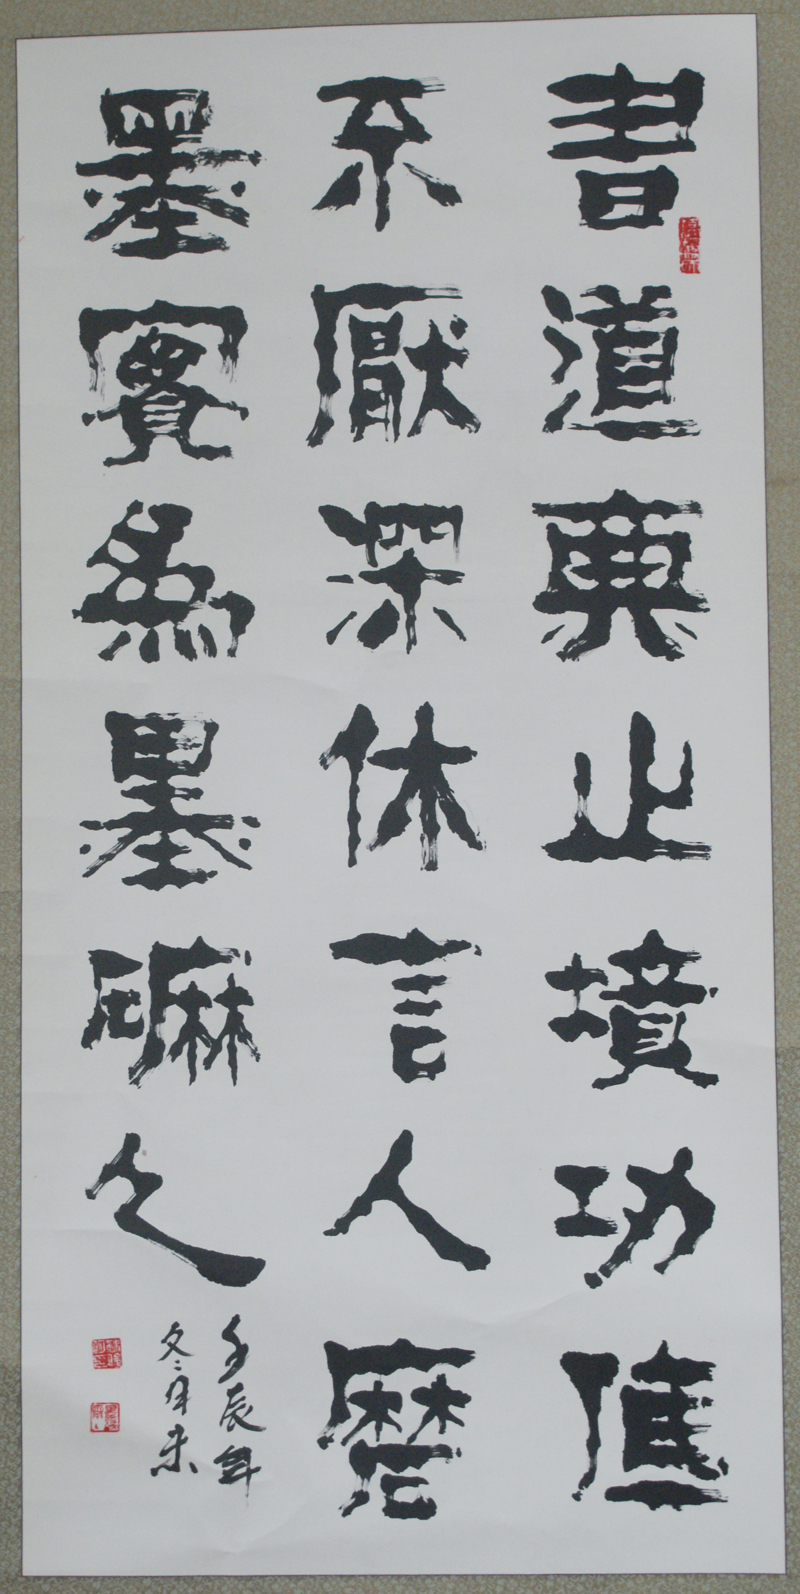 書道無止境功
不厭深休言人磨
墨實為墨磨人
壬辰年
冬月末